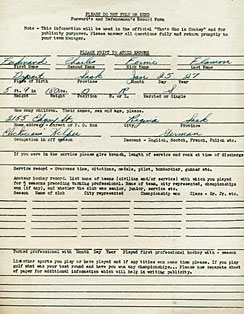 PLEASE DO NOT FOLD OR BEND
Forward's and Defenseman's Record Form
Note - This information will be used in the official "Who's Who in Hockey" and for
publicity purposes. Please answer all questions fully and return promptly to
your team manager.
PLEASE PRINT TO AVOID ERRORS
Ferdinand Charles Flaman
First Name Second Name Last Name
Sask Jan 25 27
City Province Month Day Year
5 R S
Height Weight Position R. or L. Married or Single
How many children. Their names, sex and age, please.
Regina Sask
Home address - Street or P. O. Box City Province
Helper German
Occupation in off season Descent - English, Scotch, French, Polish etc.
If you were in the service please give branch, length of service and rank at time of discharge
Service record - Overseas time, citations, medals, pilot, bombardier, gunner etc.
Amateur hockey record, list names of teams (civilian and/or service) with which you played
for 5 seasons preceding turning professional. Name of team, city represented, championships
won if any, and whether the club was senior, junior, service etc.
Season Name of club City represented Championship won Class - Sr. Jr. etc.
Turned professional with Month Day Year Played first professional hockey with - season
List other sports you play or have played and if any titles won name them please. If you play
golf what was your best round and have you won any championships... Please use separate sheet
of paper for additional information which will help in writing publicity.